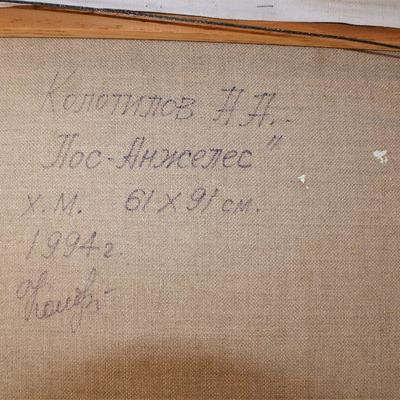 Колотилов А А.
"Лос-Анжелес"
х.м. 61 х 91 см.
1994г.